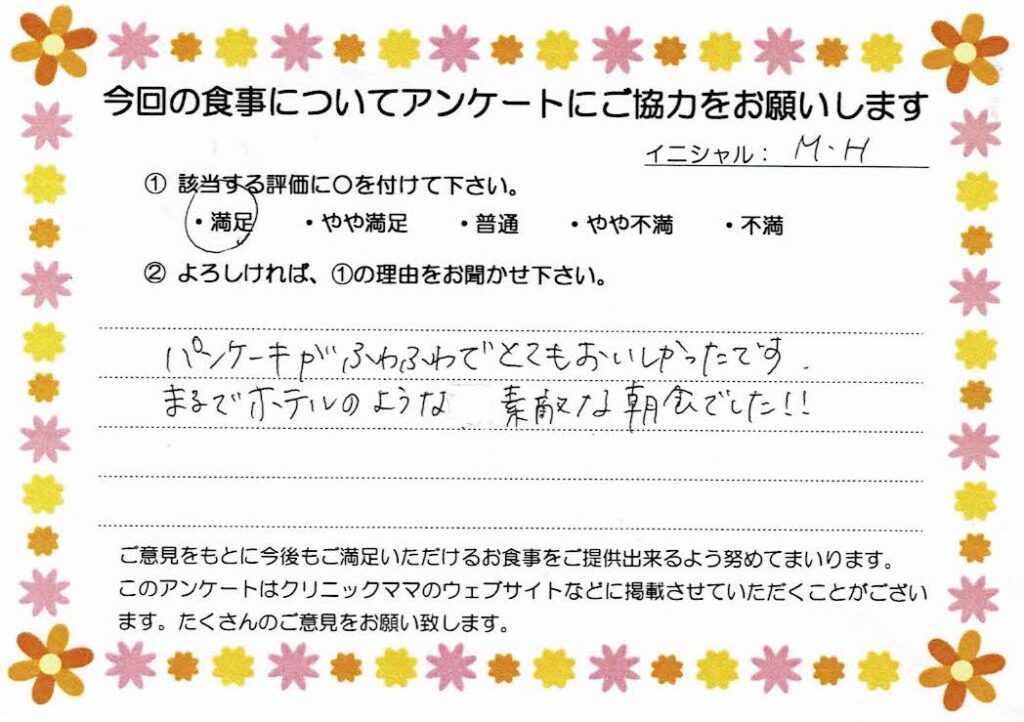 今回の食事についてアンケートにご協力をお願いします
イニシャル： M・H
① 該当する評価に○を付けて下さい。
・満足 ・やや満足 ・普通 ・やや不満 ・不満
② よろしければ、①の理由をお聞かせ下さい。
パンケーキがふわふわでとてもおいしかったです.
まるでホテルのような 素敵な朝食でした!!
ご意見をもとに今後もご満足いただけるお食事をご提供出来るよう努めてまいります。
このアンケートはクリニックママのウェブサイトなどに掲載させていただくことがござい
ます。たくさんのご意見をお願い致します。